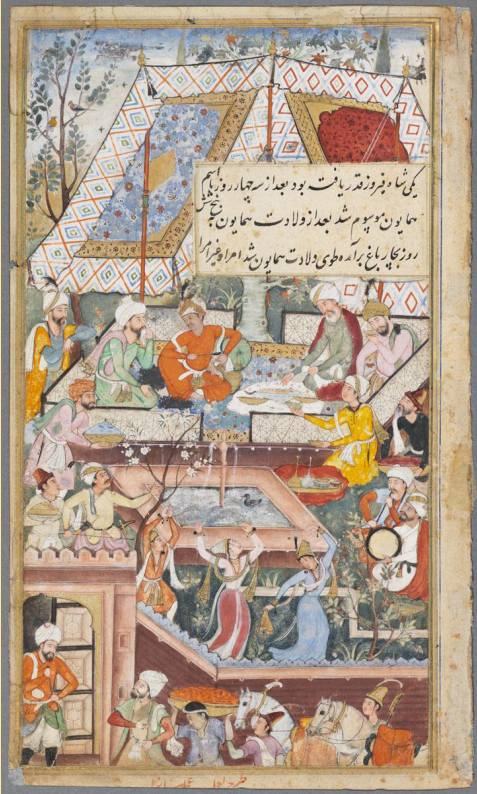 یکی شاه فیروز قدر یافت بود بعد از سه چهار روز باسم
همایون موسوم شد بعد از ولادت همایون پنج شش
روز بچار باغ برآمده طوی ولادت همایون شد امرا و غیر امرا
طرح